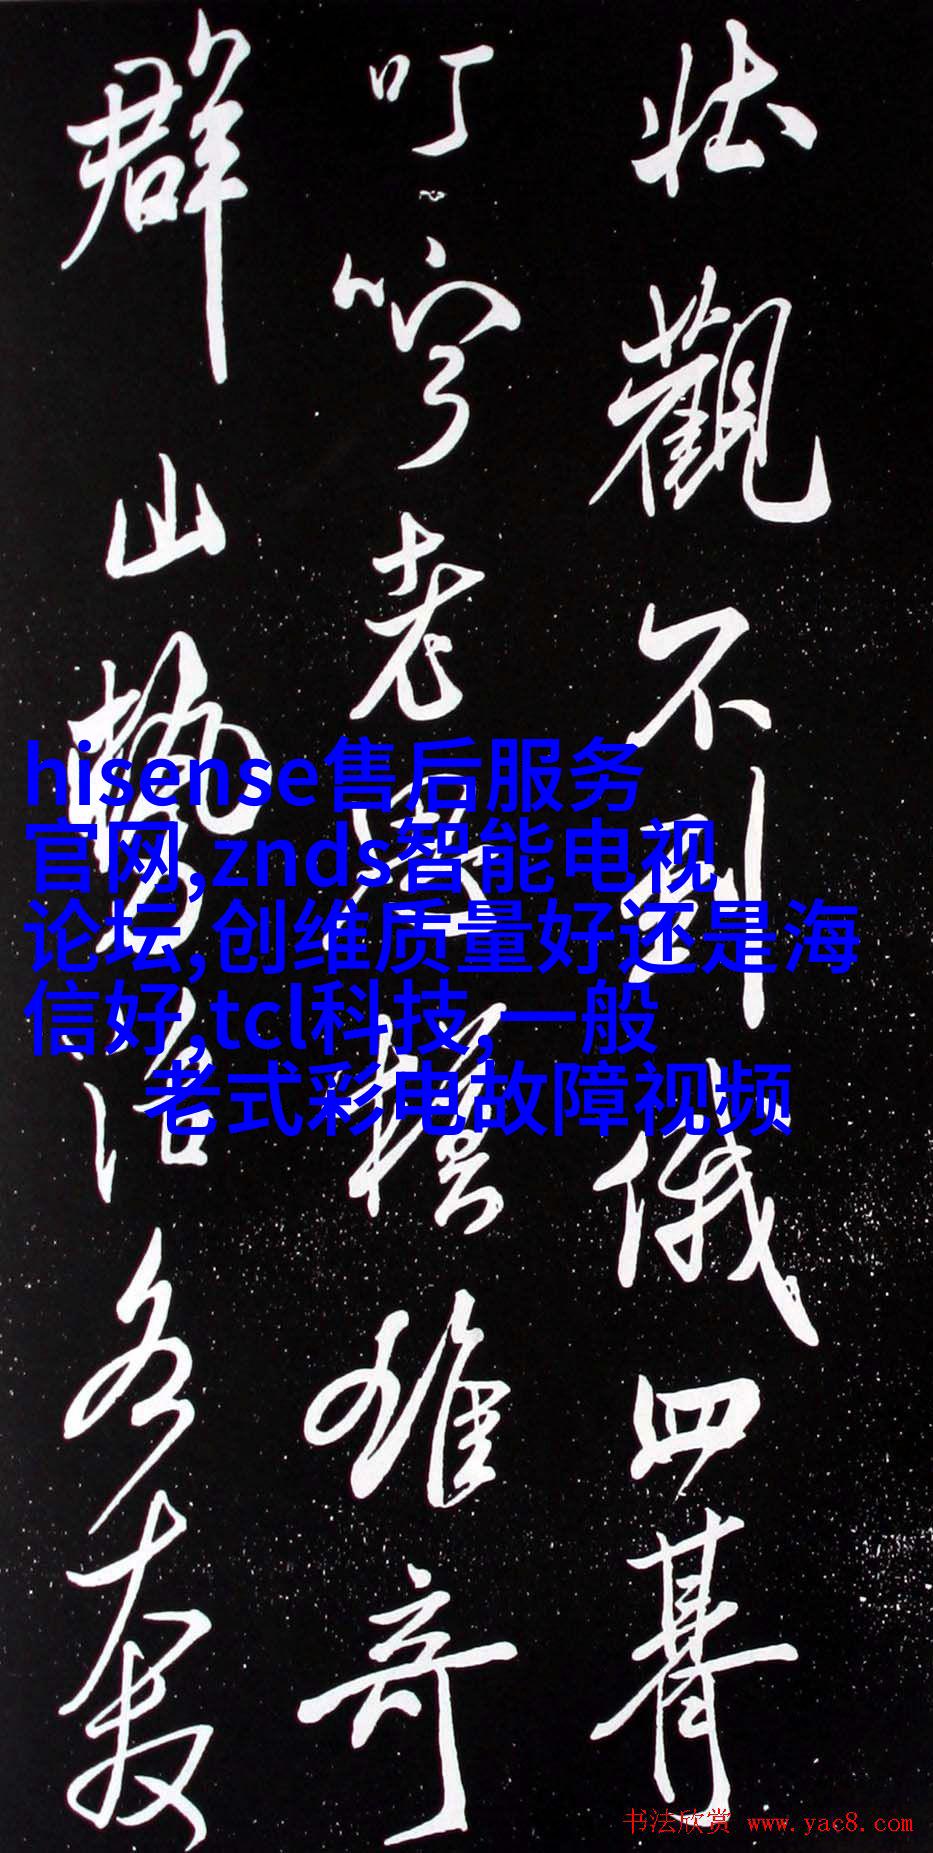 壯觀不到俄四
叮寧老雄奇
群山勢治各
hisense售后服务
官网,znds智能电视
论坛,创维质量好还是海
信好,tcl科技,一般
老式彩电故障视频
书法欣赏 www.yac8.com